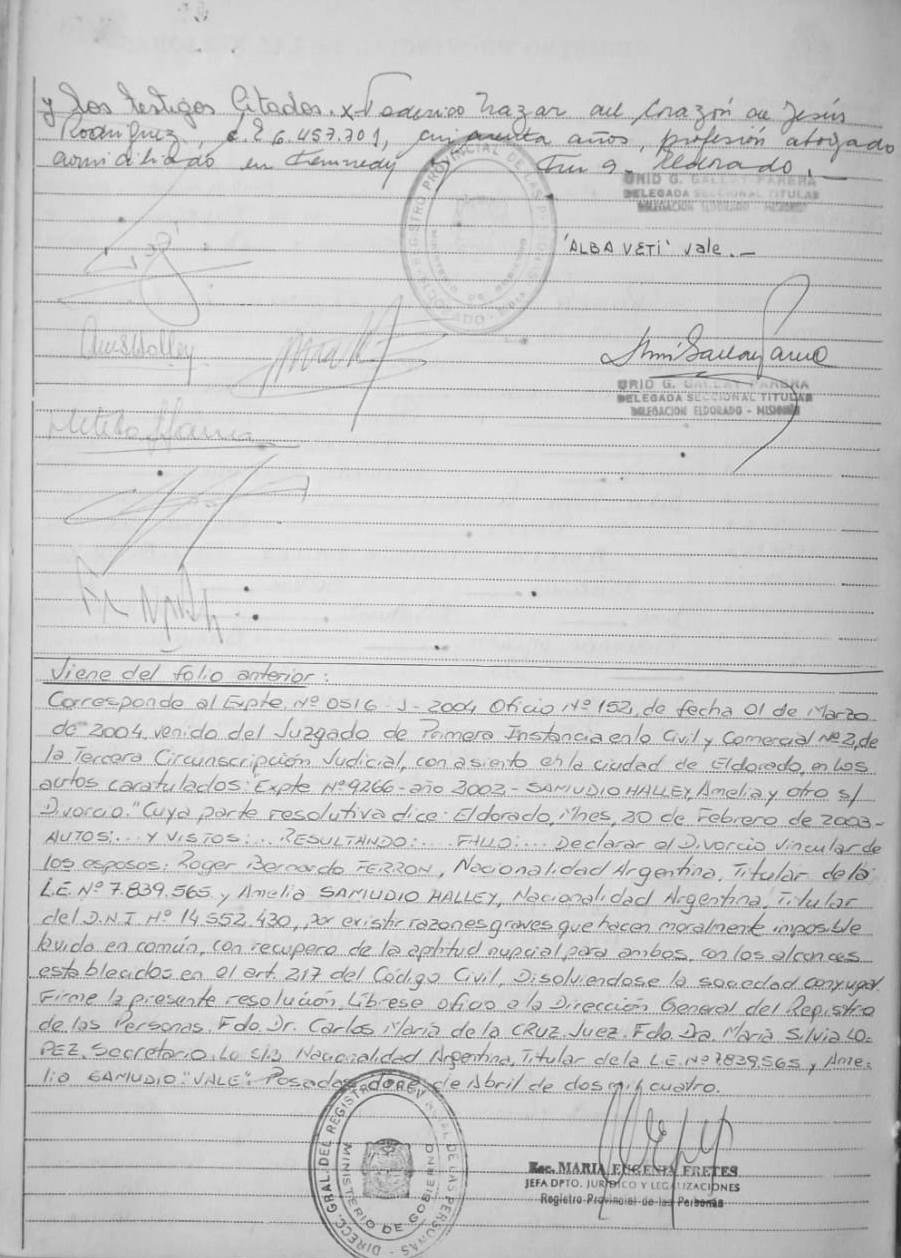 y los testigos citados. x Federico Nazar del Corazón de Jesús
Rodriguez, 6.457.701, cincuenta años, profesión abogado
domiciliado en Kennedy Eldorado.
REGISTRO PROVINCIAL DE LAS PERSONAS
ELDORADO
URID G. GALLAY PARERA
DELEGADA SECCIONAL TITULAR
DELEGACION ELDORADO - MISIONES
"ALBA VETI" vale.-
URID G. GALLAY PARERA
DELEGADA SECCIONAL TITULAR
DELEGACION ELDORADO - MISIONES
Viene del folio anterior:
Corresponde al Expte. Nº 0516 - J - 2004 Oficio Nº 152, de fecha 01 de Marzo
de 2004, venido del Juzgado de Primera Instancia en lo Civil y Comercial Nº 2, de
la Tercera Circunscripción Judicial, con asiento en la ciudad de Eldorado, en los
autos caratulados: Expte Nº 9266 - año 2002 - SAMUDIO HALLEY, Amelia y otro s/
Divorcio." Cuya parte resolutiva dice: Eldorado, Mnes, 20 de Febrero de 2003-
AUTOS:... Y VISTOS:... RESULTANDO:... FALLO:... Declarar el Divorcio vincular de
los esposos: Roger Bernardo FERRON, Nacionalidad Argentina, Titular de la
L.E. Nº 7.839.565 y Amelia SAMUDIO HALLEY, Nacionalidad Argentina, Titular
del D.N.I. Nº 14.552.430, por existir razones graves que hacen moralmente imposible
la vida en común, con recupero de la aptitud nupcial para ambos, con los alcances
establecidos en el art. 217 del Código Civil, Disolviendose la sociedad conyugal.
Firme la presente resolución, Líbrese oficio a la Dirección General del Registro
de las Personas. Fdo. Dr. Carlos María de la CRUZ. Juez. Fdo. Dra. María Silvia LO-
PEZ. Secretario. Lo s/b Nacionalidad Argentina, Titular de la L.E. Nº 7839565 y Ame-
lia SAMUDIO "VALE". Posadas, doce de Abril de dos mil cuatro.
DIRECC. GRAL. DEL REGISTRO PROVINCIAL DE LAS PERSONAS
MINISTERIO DE GOBIERNO
Esc. MARIA EUGENIA FRETES
JEFA DPTO. JURIDICO Y LEGALIZACIONES
Registro Provincial de las Personas